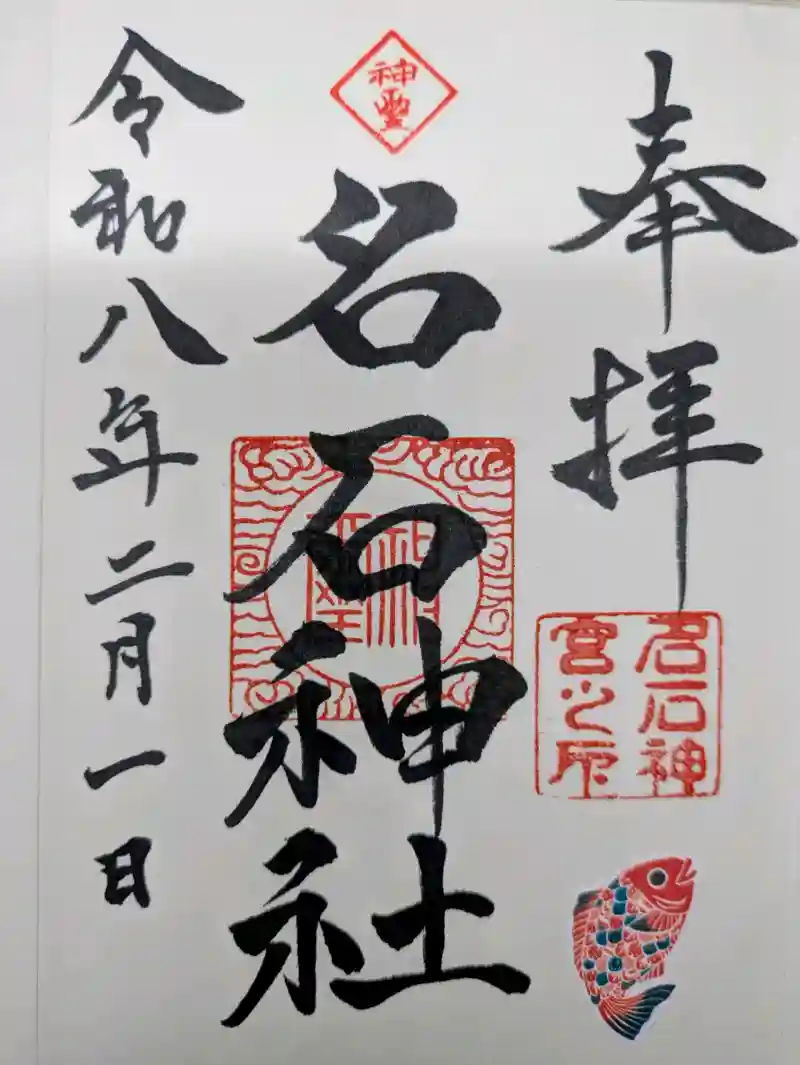 奉拝
名石神
宮之印
神璽
名石神社
令和八年二月一日